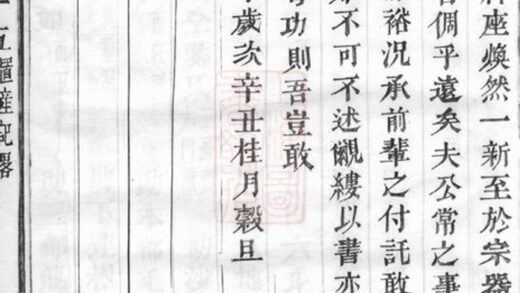 座煥然一新至於宗器
倜乎遠矣夫公常之事
裕況承前輩之付託敢
不可不述覼縷以書亦
功則吾豈敢
歲次辛丑桂月穀旦
記畧